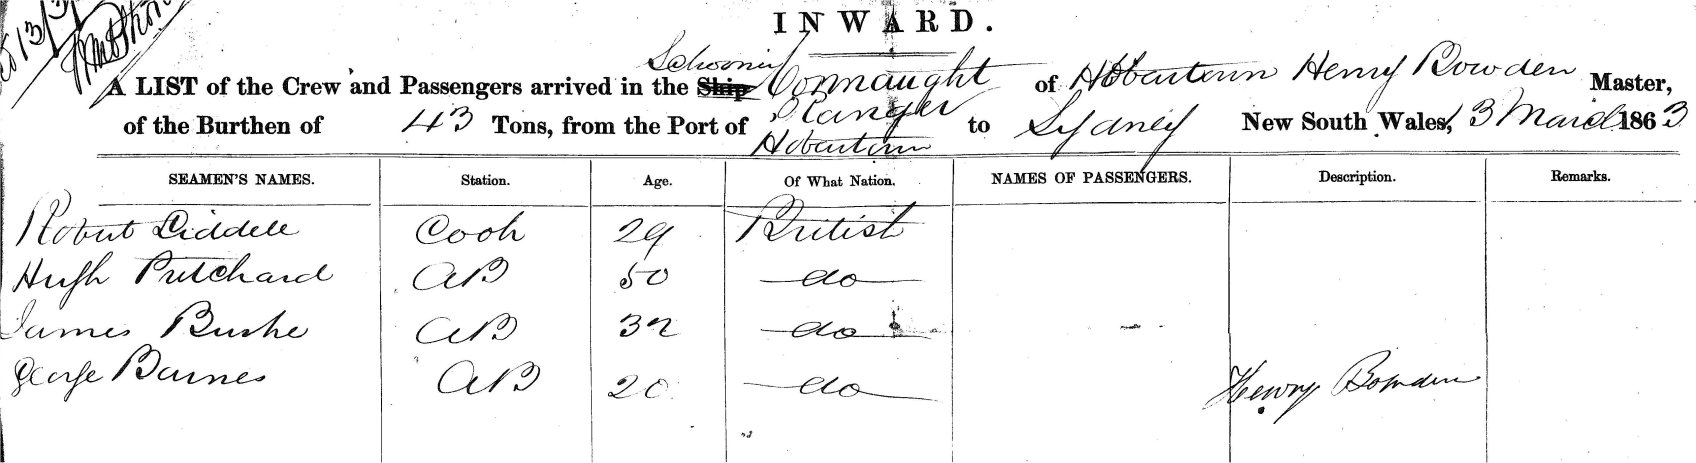 INWARD.
Schooner
A LIST of the Crew and Passengers arrived in the Ship Connaught of Hobartown Henry Bowden Master,
Ranger
of the Burthen of 43 Tons, from the Port of Hobartown to Sydney New South Wales, 13 March 1863
SEAMEN'S NAMES. Station. Age. Of What Nation. NAMES OF PASSENGERS. Description. Remarks.
Robert Liddell Cook 29 British
Hugh Pritchard AB 50 do
James Burke AB 32 do
George Barnes AB 20 do
Henry Bowden